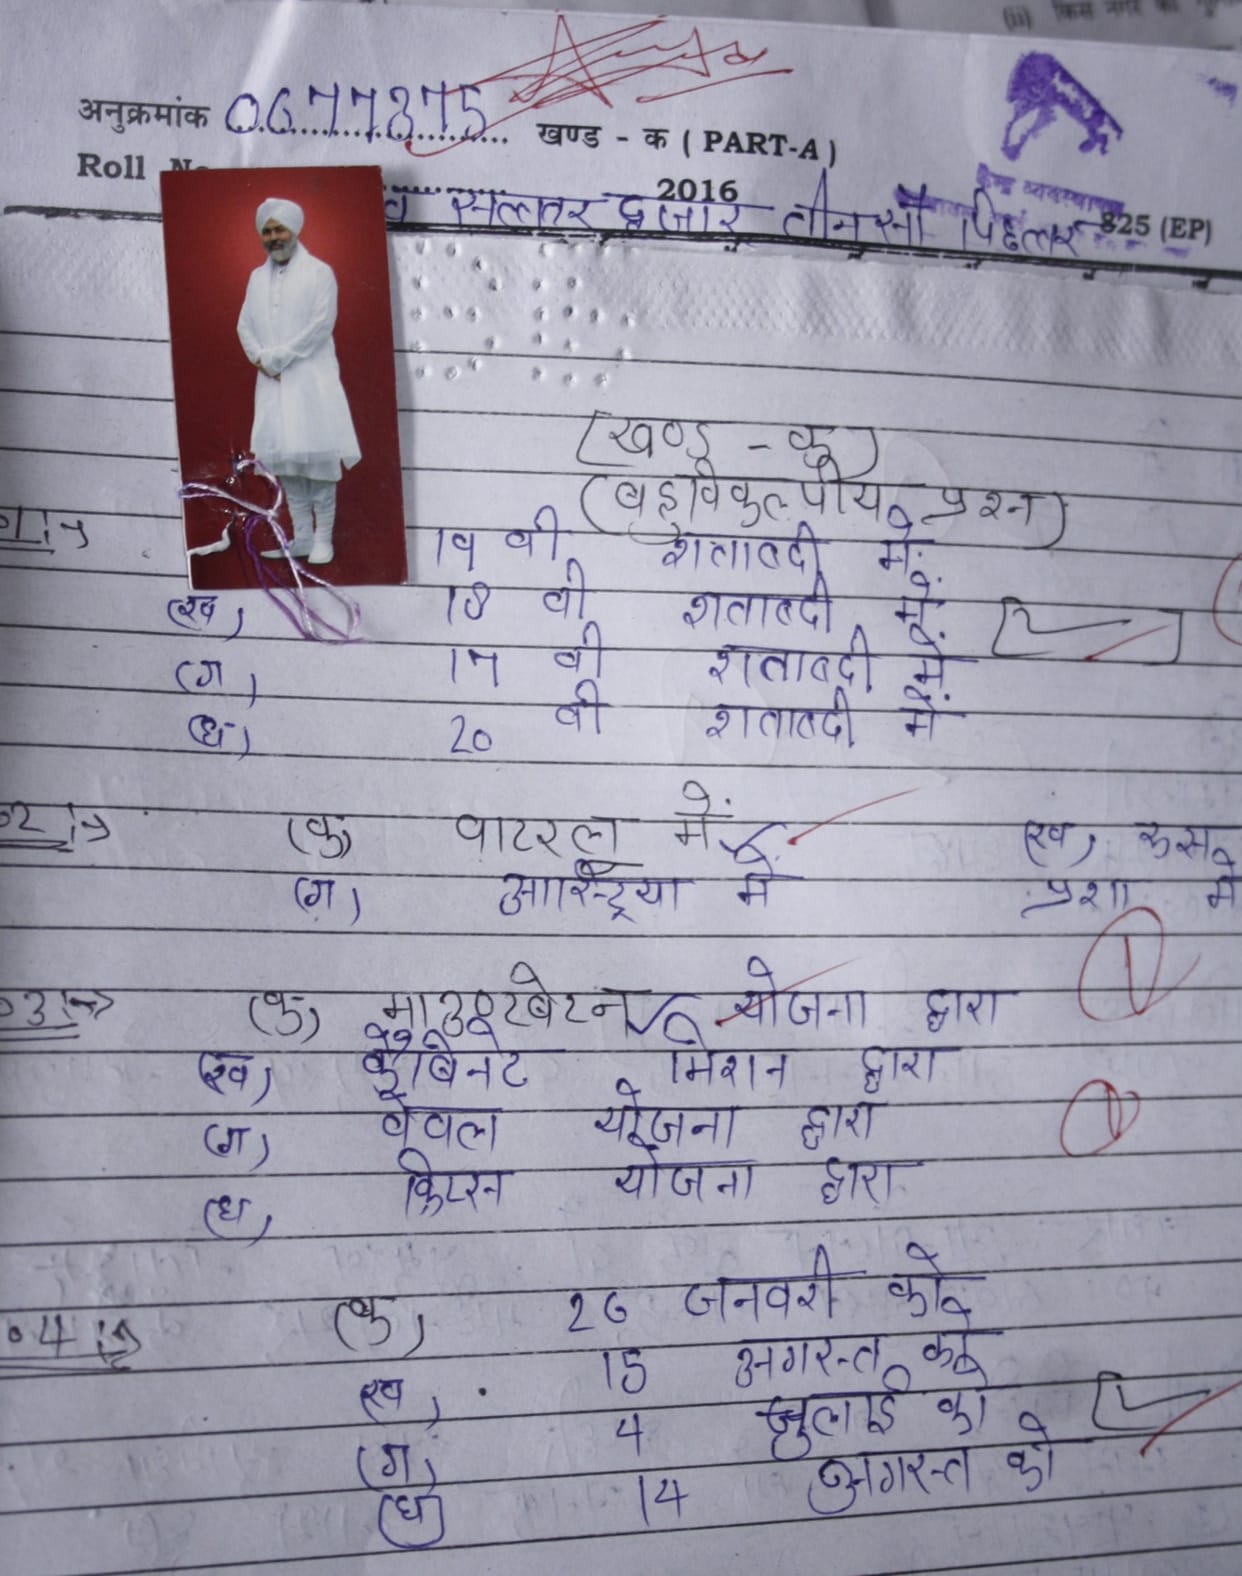 (ii) किस नगर को
अनुक्रमांक 0677375 खण्ड - क ( PART-A )
Roll No
2016
825 (EP)
व सत्तर हजार तीन सौ पिहत्तर
केन्द्र व्यवस्थापक
(खण्ड - क)
(बहुविकल्पीय प्रश्न)
01
19 वी शताब्दी में
(ख) 18 वी शताब्दी में
(ग) 17 वी शताब्दी में
(घ) 20 वी शताब्दी में
02 (क) वाटरलू में (ख) रूस
(ग) आस्ट्रिया में प्रशा में
1
03 (क) माउण्टबेटन योजना द्वारा
(ख) कैबिनेट मिशन द्वारा
(ग) वेवल योजना द्वारा
1
(घ) योजना द्वारा
04 (क) 26 जनवरी को
(ख) 15 अगस्त को
(ग) 4 जुलाई को
(घ) 14 अगस्त को